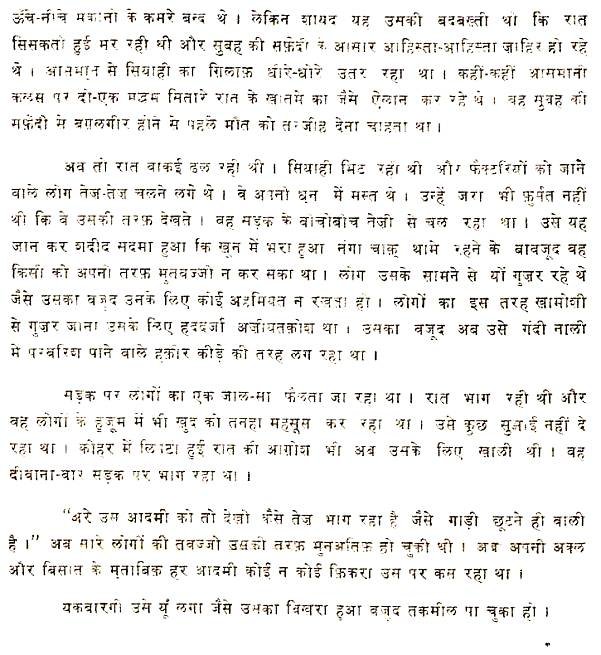 ऊँचे-नीचे मकानों के कमरे बन्द थे । लेकिन शायद यह उसकी बदबख्ती थी कि रात
सिसकती हुई मर रही थी और सुबह की सफ़ेदी के आसार आहिस्ता-आहिस्ता ज़ाहिर हो रहे
थे । आसमान से सियाही का ग़िलाफ़ धीरे-धीरे उतर रहा था । कहीं-कहीं आसमानी
कलस पर दो-एक मद्धम सितारे रात के खातमे का जैसे ऐलान कर रहे थे । वह सुबह की
सफ़ेदी से बग़लगीर होने से पहले मौत को तरजीह देना चाहता था ।
अब तो रात वाकई ढल रही थी । सियाही मिट रही थी और फैक्टरियों को जाने
वाले लोग तेज़-तेज़ चलने लगे थे । वे अपनी धुन में मस्त थे । उन्हें जरा भी फ़ुर्सत नहीं
थी कि वे उसकी तरफ़ देखते । वह सड़क के बीचोंबीच तेज़ी से चल रहा था । उसे यह
जान कर शदीद सदमा हुआ कि खून में भरा हुआ नंगा चाक़ू थामे रहने के बावजूद वह
किसी को अपनी तरफ़ मुतवज्जो न कर सका था । लोग उसके सामने से यों गुज़र रहे थे
जैसे उसका वजूद उनके लिए कोई अहमियत न रखता हो । लोगों का इस तरह खामोशी
से गुज़र जाना उसके लिए हददर्जा अज़ीयतकोश था । उसका वजूद अब उसे गंदी नाली
में परवरिश पाने वाले हक़ीर कीड़े की तरह लग रहा था ।
सड़क पर लोगों का एक जाल-सा फैलता जा रहा था । रात भाग रही थी और
वह लोगों के हुजूम में भी खुद को तनहा महसूस कर रहा था । उसे कुछ सुझाई नहीं दे
रहा था । कोहर में लिपटी हुई रात की आग़ोश भी अब उसके लिए खाली थी । वह
दीवाना-वार सड़क पर भाग रहा था ।
“अरे उस आदमी को तो देखो कैसे तेज़ भाग रहा है जैसे गाड़ी छूटने ही वाली
है ।” अब सारे लोगों की तवज्जो उसकी तरफ़ मुनअतिफ़ हो चुकी थी । अब अपनी अक्ल
और बिसात के मुताबिक़ हर आदमी कोई न कोई फ़िकरा उस पर कस रहा था ।
यकबारगी उसे यूँ लगा जैसे उसका बिखरा हुआ वजूद तकमील पा चुका हो ।